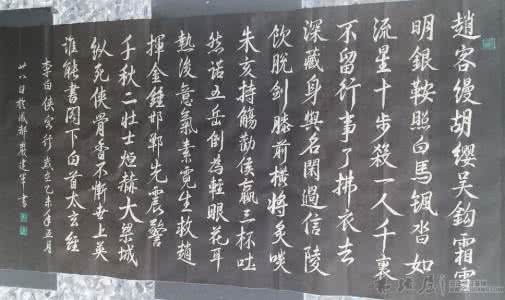 趙客縵胡纓吳鉤霜雪
明銀鞍照白馬颯沓如
流星十步殺一人千裏
不留行事了拂衣去
深藏身與名閑過信陵
飲脫劍膝前橫將炙啖
朱亥持觴勸侯嬴三杯吐
然諾五岳倒為輕眼花耳
熱後意氣素霓生救趙
揮金錘邯鄲先震驚
千秋二壯士烜赫大梁城
縱死俠骨香不慚世上英
誰能書閣下白首太玄經
李白俠客行歲在乙未年五月
廿八日於成都建軍書